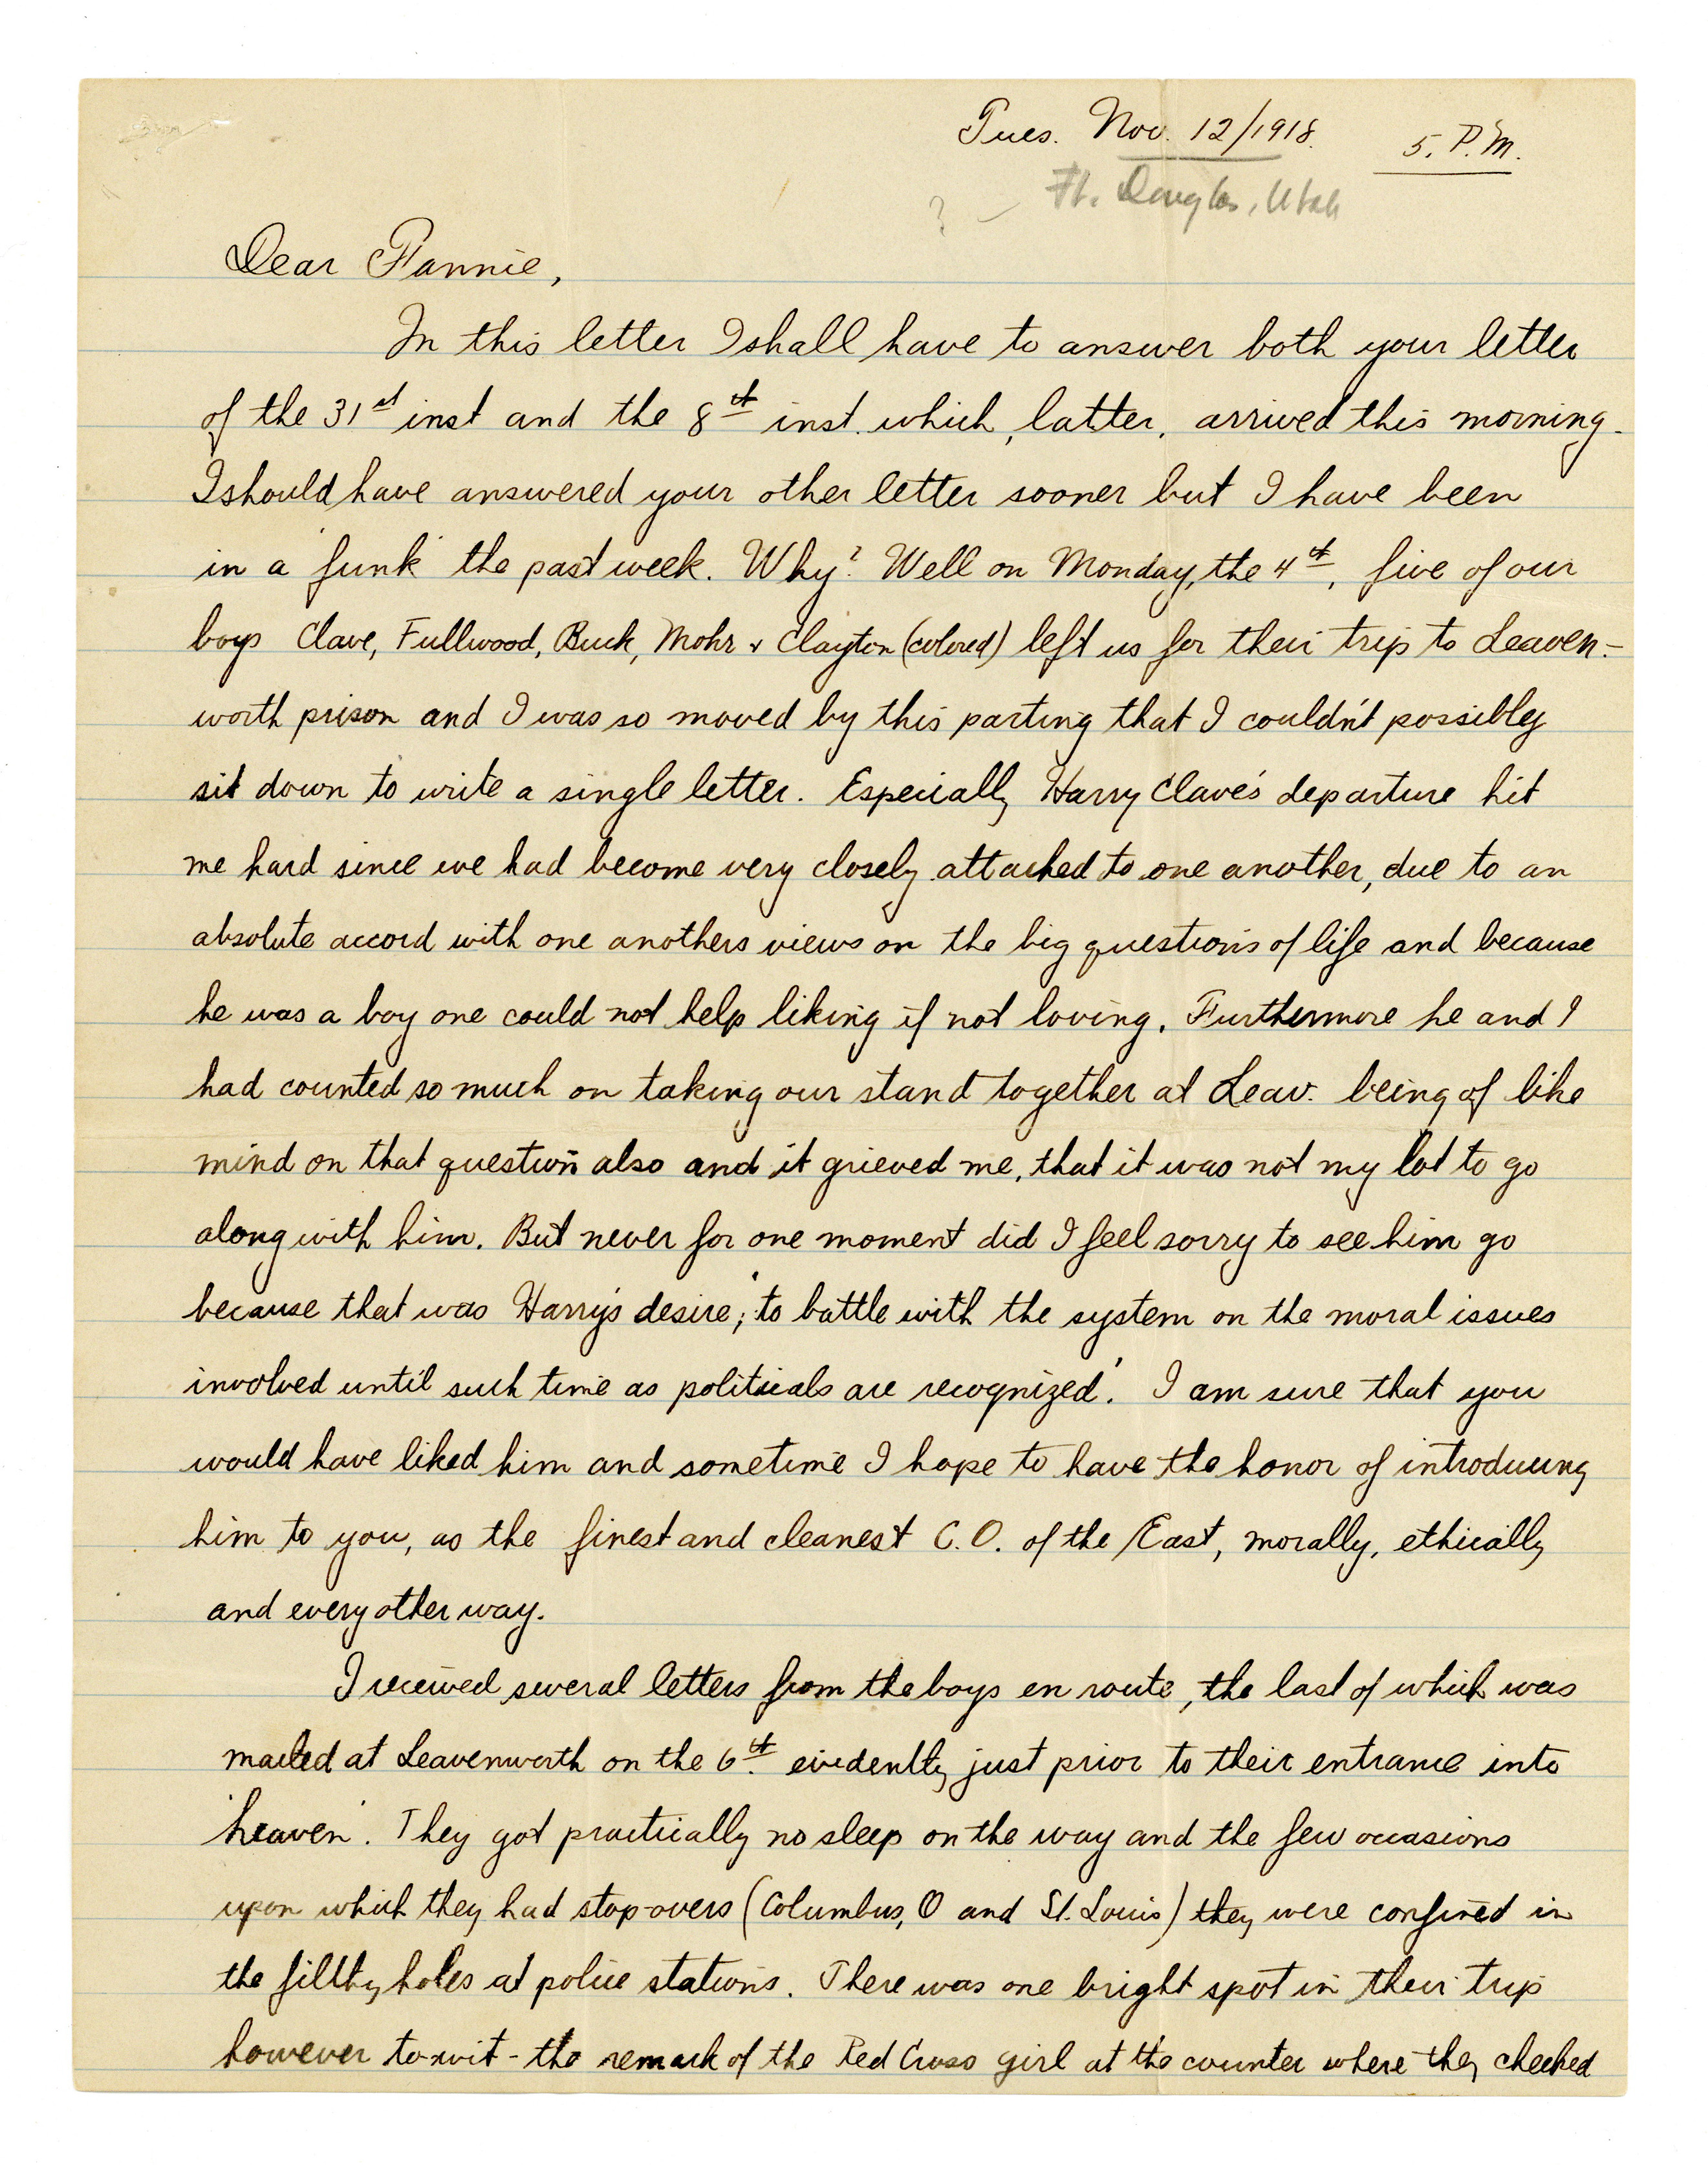 Tues. Nov. 12/1918. 5. P.M.
? - Ft. Douglas, Utah
Dear Fannie,
In this letter I shall have to answer both your letter
of the 31st inst and the 8th inst. which, latter, arrived this morning.
I should have answered your other letter sooner but I have been
in a 'funk' the past week. Why? Well on Monday, the 4th, five of our
boys Clave, Fullwood, Buck, Mohr & Clayton (colored) left us for their trip to Leaven-
worth prison and I was so moved by this parting that I couldn't possibly
sit down to write a single letter. Especially Harry Clave's departure hit
me hard since we had become very closely attached to one another, due to an
absolute accord with one anothers views on the big questions of life and because
he was a boy one could not help liking if not loving. Furthermore he and I
had counted so much on taking our stand together at Leav. being of like
mind on that question also and it grieved me, that it was not my lot to go
along with him. But never for one moment did I feel sorry to see him go
because that was Harry's desire; 'to battle with the system on the moral issues
involved until such time as politicals are recognized'. I am sure that you
would have liked him and sometime I hope to have the honor of introducing
him to you, as the finest and cleanest C.O. of the East, morally, ethically
and every other way.
I received several letters from the boys en route, the last of which was
mailed at Leavenworth on the 6th. evidently just prior to their entrance into
'heaven'. They got practically no sleep on the way and the few occasions
upon which they had stop-overs (Columbus, O and St. Louis) they were confined in
the filthy holes at police stations. There was one bright spot in their trip
however to-wit - the remark of the Red Cross girl at the counter where they checked